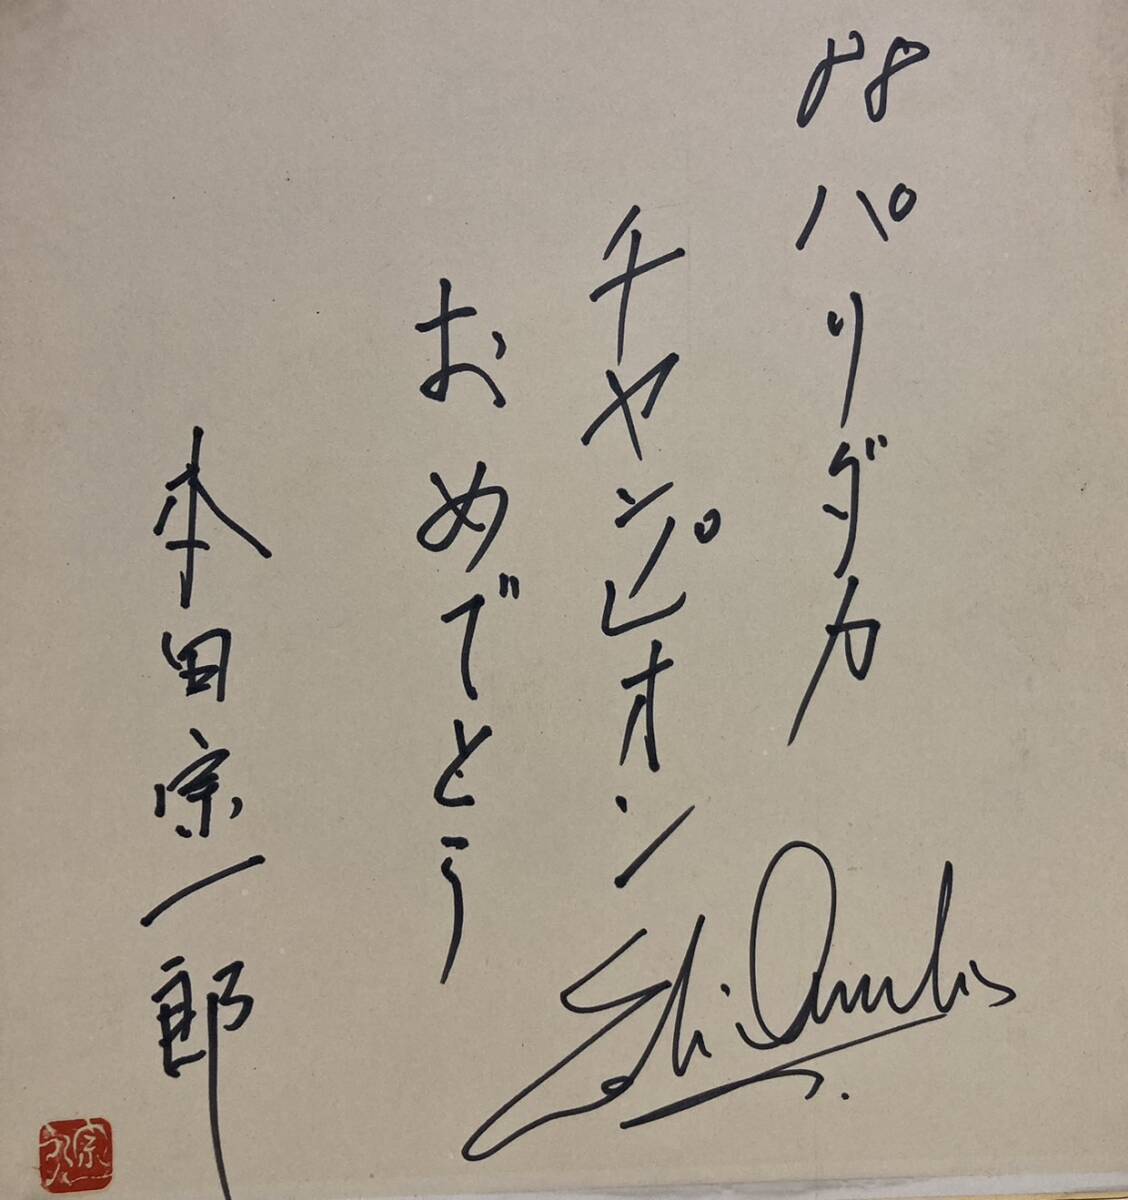 88パリダカ
チャンピオン
おめでとう
本田宗一郎
Edi Orioli